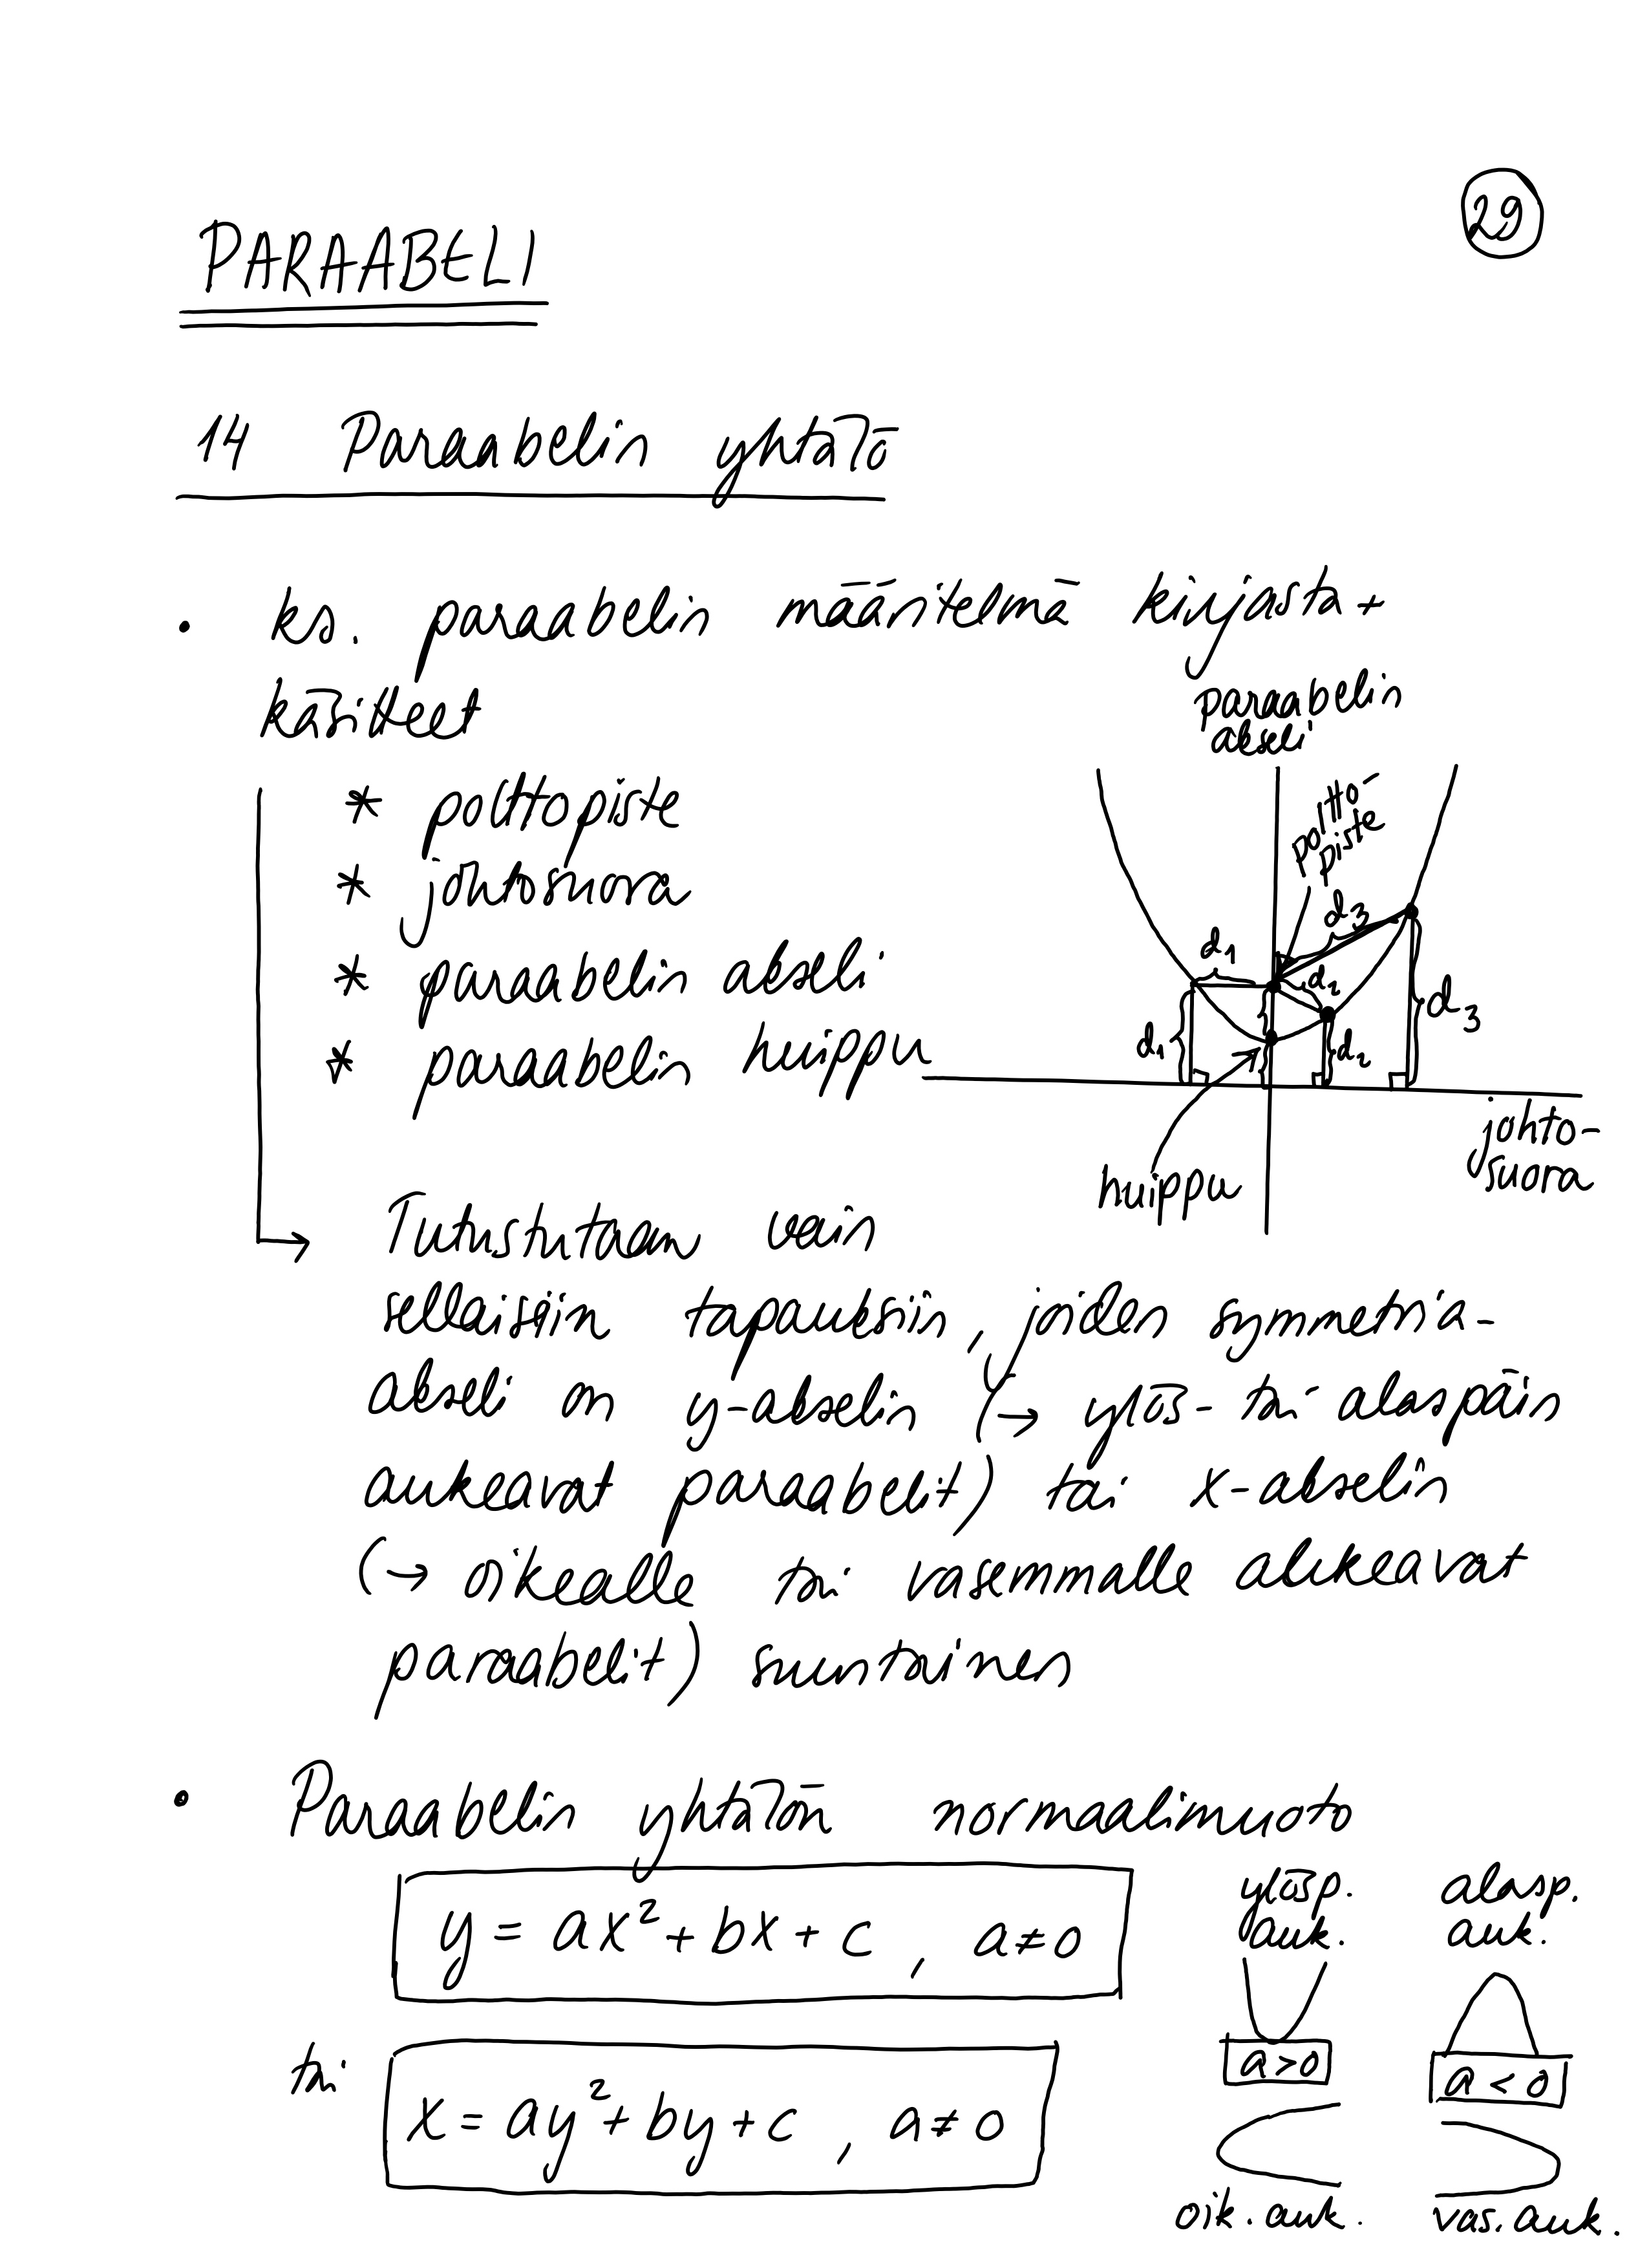 29
PARAABELI
14 Paraabelin yhtälö
• ks. paraabelin määritelmä kirjasta +
käsitteet
* polttopiste
* johtosuora
* paraabelin akseli
* paraabelin huippu
paraabelin
akseli
poltto-
piste
d₃
d₁
d₂
d₃
d₁
d₂
johto-
suora
huippu
→ Tutustutaan vain
sellaisiin tapauksiin, joiden symmetria-
akseli on y-akselin (→ ylös- tai alaspäin
aukeavat paraabelit) tai x-akselin
(→ oikealle tai vasemmalle aukeavat
paraabelit) suuntainen
• Paraabelin yhtälön normaalimuoto
y = ax² + bx + c , a ≠ 0
tai
x = ay² + by + c , a ≠ 0
ylösp.
auk.
alasp.
auk.
a > 0
a < 0
oik. auk.
vas. auk.